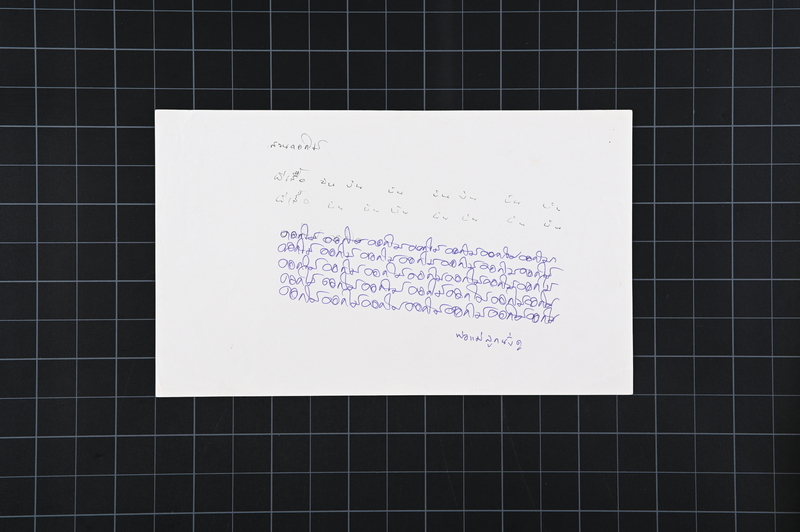 สวนดอกไม้
ผีเสื้อ บิน บิน บิน บิน บิน บิน บิน
ผีเสื้อ บิน บิน บิน บิน บิน บิน บิน
ดอกไม้ ดอกไม้ ดอกไม้ ดอกไม้ ดอกไม้ ดอกไม้ ดอกไม้
ดอกไม้ ดอกไม้ ดอกไม้ ดอกไม้ ดอกไม้ ดอกไม้ ดอกไม้
ดอกไม้ ดอกไม้ ดอกไม้ ดอกไม้ ดอกไม้ ดอกไม้ ดอกไม้
ดอกไม้ ดอกไม้ ดอกไม้ ดอกไม้ ดอกไม้ ดอกไม้ ดอกไม้
ดอกไม้ ดอกไม้ ดอกไม้ ดอกไม้ ดอกไม้ ดอกไม้ ดอกไม้
พ่อแม่ลูกนั่งดู